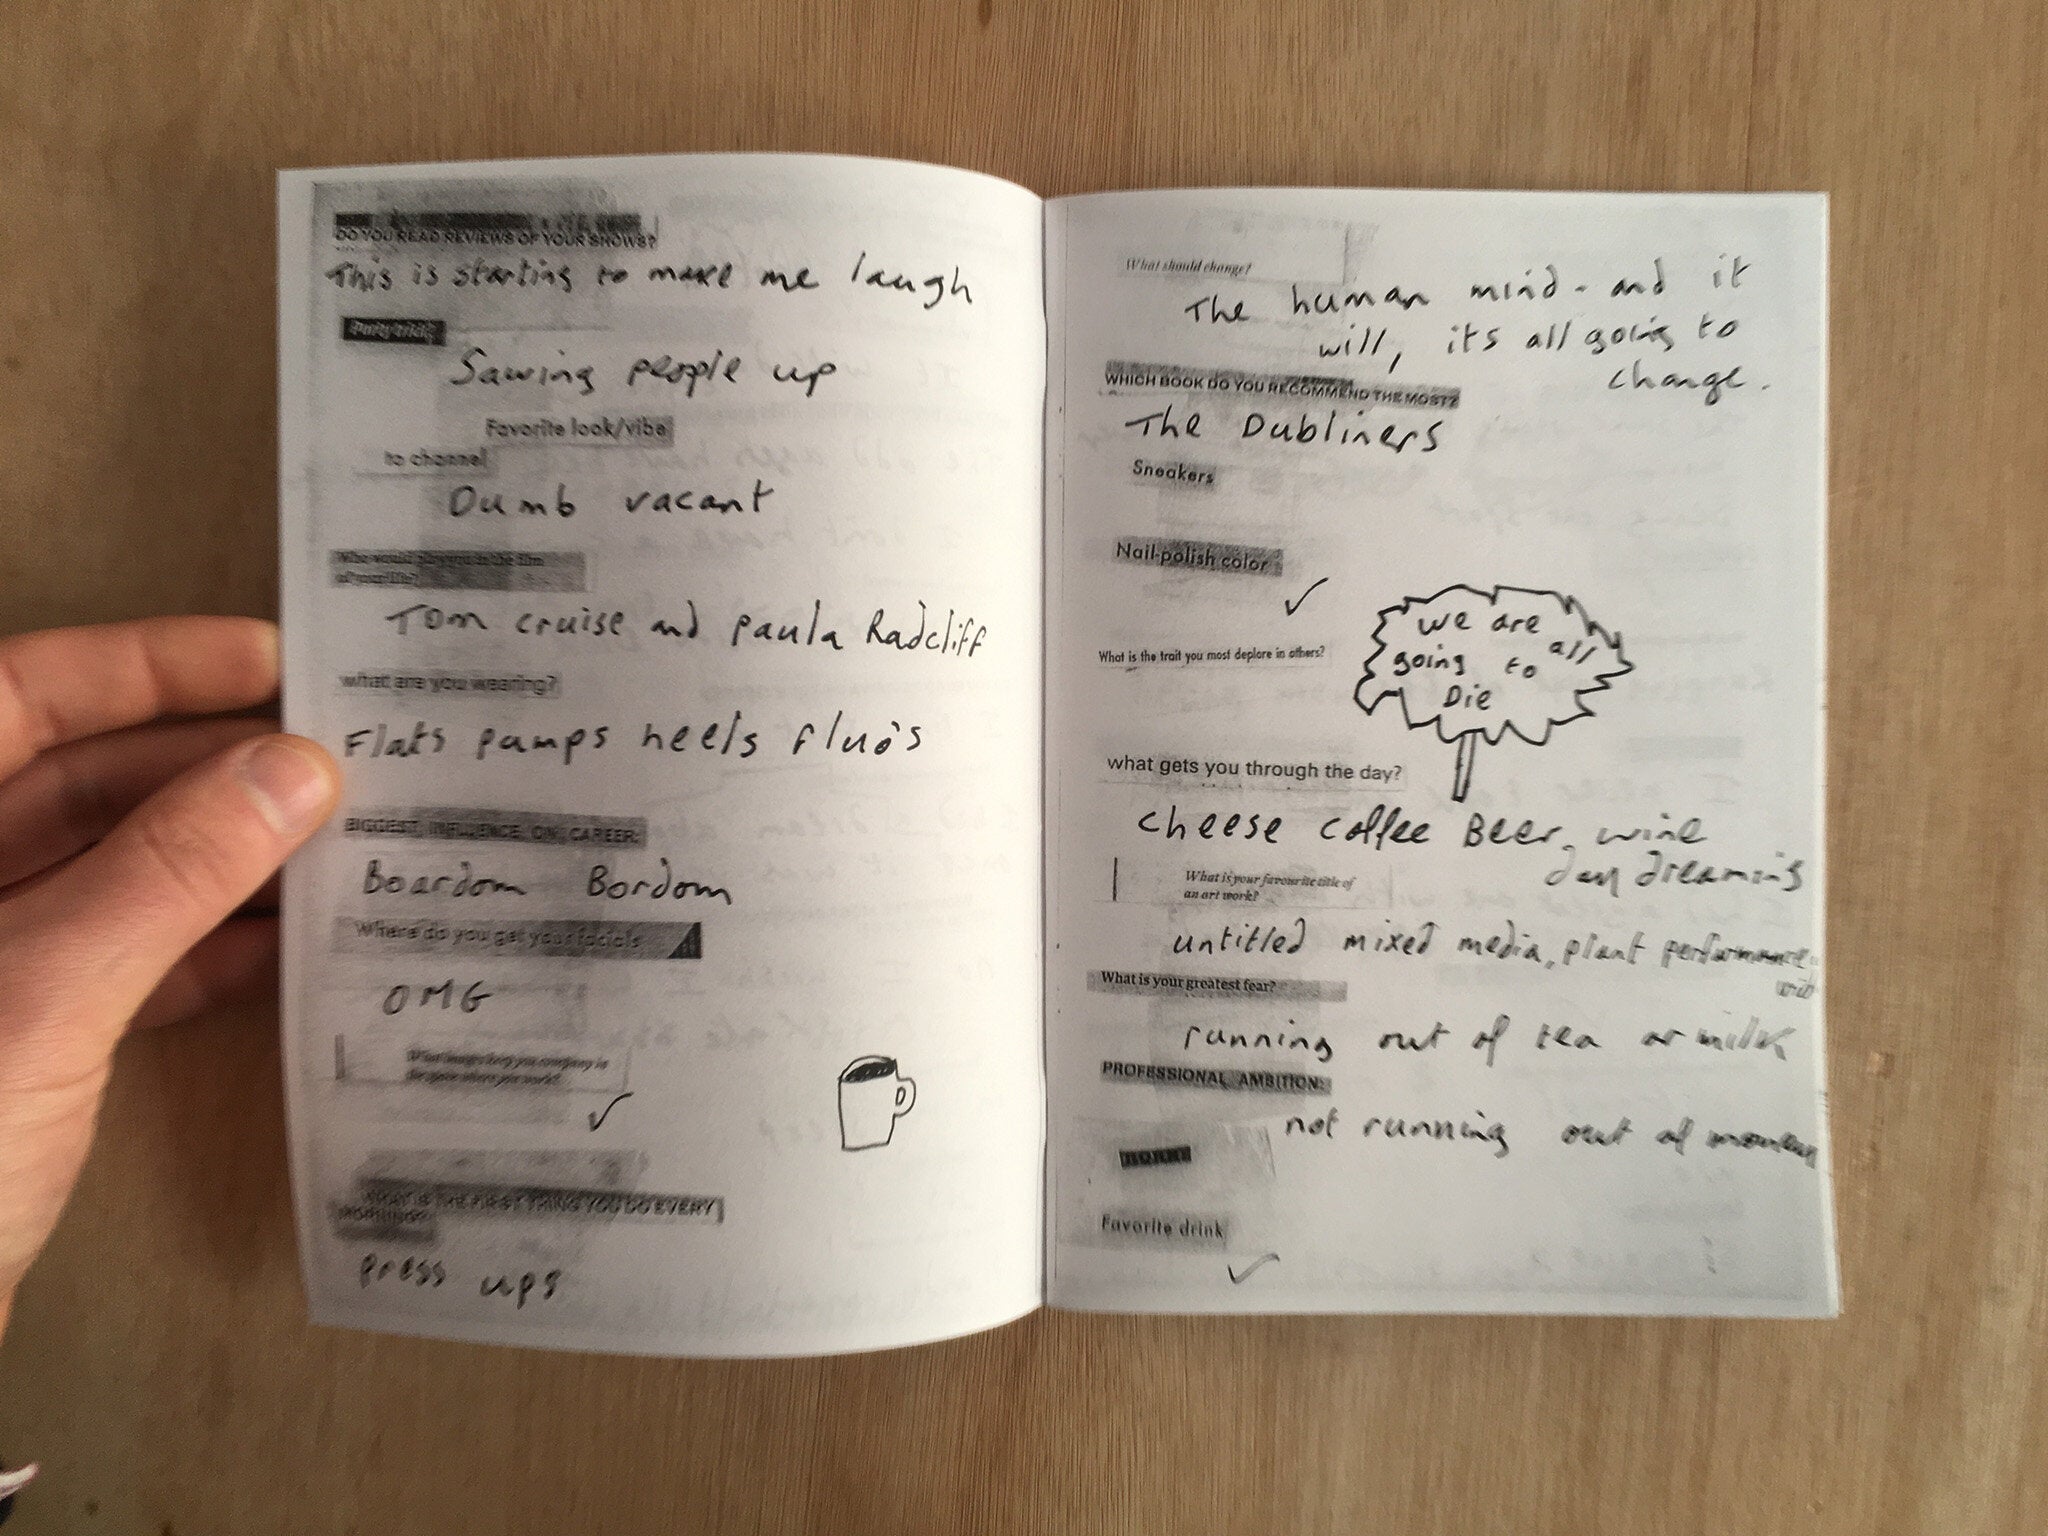 DO YOU READ REVIEWS OF YOUR SHOWS?
This is starting to make me laugh
Party trick?
Sawing people up
Favorite look/vibe
to channel
Dumb vacant
Who would play you in the film
of your life?
Tom cruise and paula Radcliff
what are you wearing?
Flats pumps heels fluo's
BIGGEST INFLUENCE ON CAREER:
Boardom Bordom
Where do you get your facials
OMG
What images keep you company in
the space where you work?
WHAT IS THE FIRST THING YOU DO EVERY
MORNING?
press ups
What should change?
The human mind - and it
will, it's all going to
change.
WHICH BOOK DO YOU RECOMMEND THE MOST?
The Dubliners
Sneakers
Nail-polish color
What is the trait you most deplore in others?
we are
all
going to
Die
what gets you through the day?
cheese coffee Beer, wine
day dreaming
What is your favourite title of
an art work?
untitled mixed media, plant performance
What is your greatest fear?
running out of tea or milk
PROFESSIONAL AMBITION:
not running out of
Favorite drink